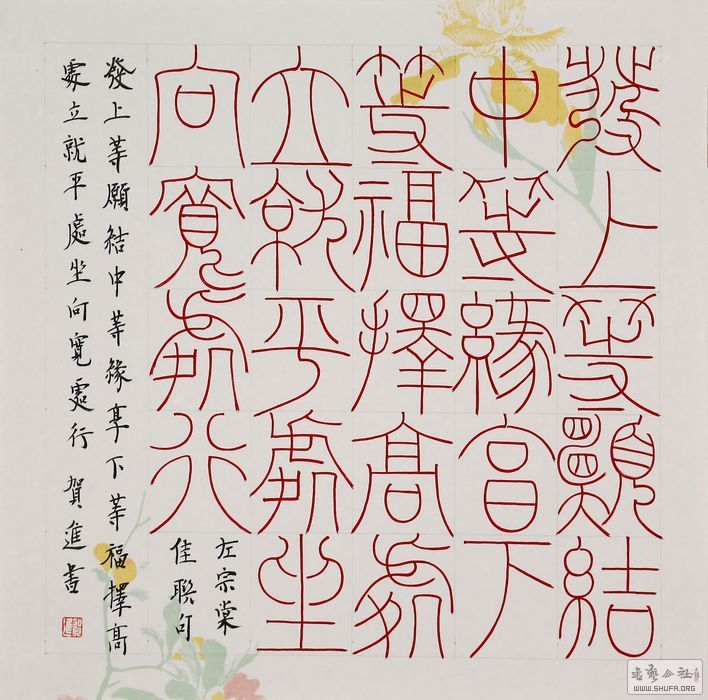 發上等願結
中等緣享下
等福擇高處
立就平處坐
向寬處行
左宗棠
佳聯句
發上等願結中等緣享下等福擇高
處立就平處坐向寬處行 賀進書
書藝公社
WWW.SHUFA.ORG